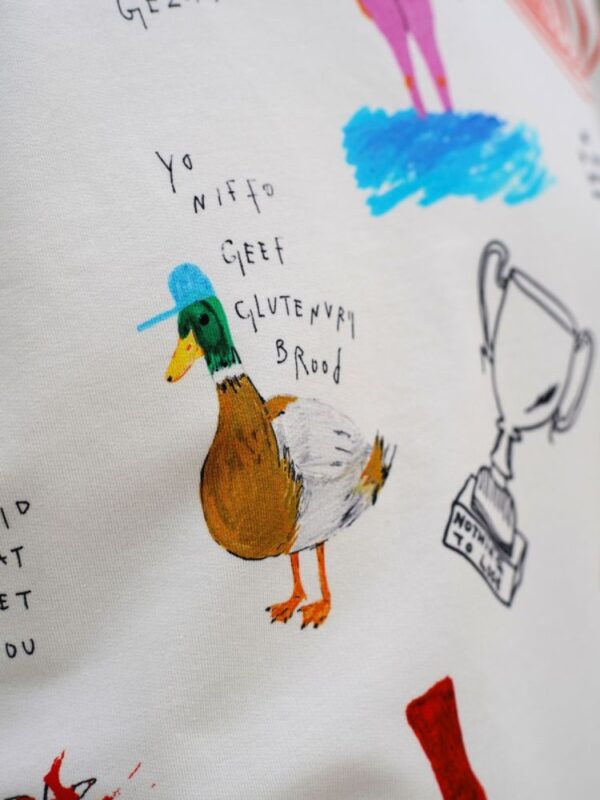 YO
NIFFO
GEEF
GLUTENVRIJ
BROOD
NOTHING
TO LOSE
ET
OU